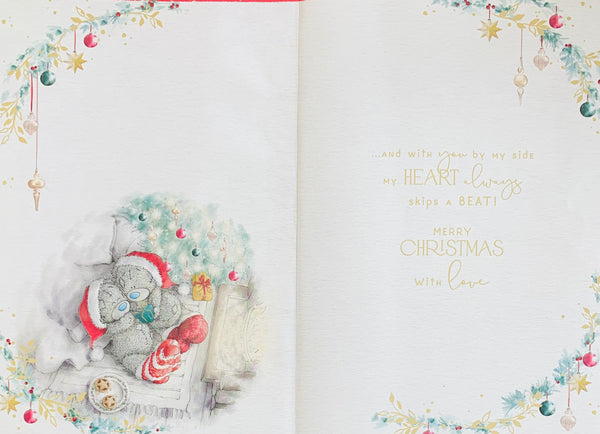 ...AND WITH you BY MY SIDE
MY HEART always
SKIPS A BEAT!
MERRY
CHRISTMAS
WITH love